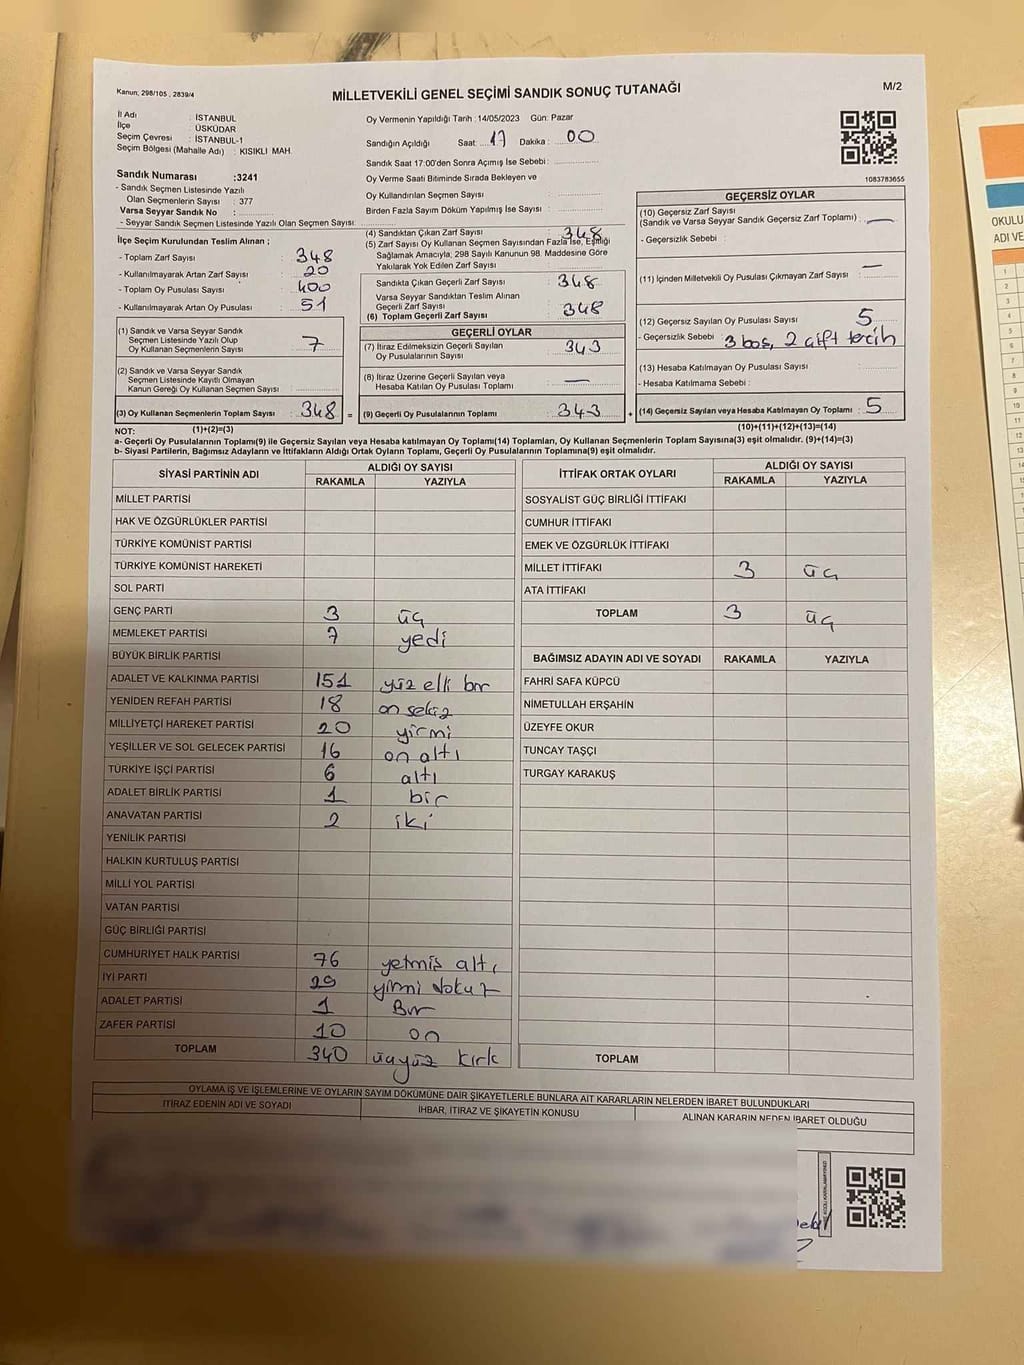 Kanun; 298/105 , 2839/4
MİLLETVEKİLİ GENEL SEÇİMİ SANDIK SONUÇ TUTANAĞI
M/2
İl Adı : İSTANBUL
İlçe : ÜSKÜDAR
Seçim Çevresi : İSTANBUL-1
Seçim Bölgesi (Mahalle Adı) : KISIKLI MAH.
Sandık Numarası :3241
- Sandık Seçmen Listesinde Yazılı
Olan Seçmenlerin Sayısı : 377
Varsa Seyyar Sandık No :
- Seyyar Sandık Seçmen Listesinde Yazılı Olan Seçmen Sayısı:
Oy Vermenin Yapıldığı Tarih :14/05/2023 Gün: Pazar
Sandığın Açıldığı Saat: 17 Dakika: 00
Sandık Saat 17:00'den Sonra Açımış İse Sebebi:
Oy Verme Saati Bitiminde Sırada Bekleyen ve
Oy Kullandırılan Seçmen Sayısı :
Birden Fazla Sayım Döküm Yapılmış İse Sayısı :
1083783655
İlçe Seçim Kurulundan Teslim Alınan ;
- Toplam Zarf Sayısı : 348
- Kullanılmayarak Artan Zarf Sayısı : 20
- Toplam Oy Pusulası Sayısı : 400
- Kullanılmayarak Artan Oy Pusulası : 51
(1) Sandık ve Varsa Seyyar Sandık
Seçmen Listesinde Yazılı Olup
Oy Kullanan Seçmenlerin Sayısı : 7
(2) Sandık ve Varsa Seyyar Sandık
Seçmen Listesinde Kayıtlı Olmayan
Kanun Gereği Oy Kullanan Seçmen Sayısı :
(3) Oy Kullanan Seçmenlerin Toplam Sayısı : 348 =
(4) Sandıktan Çıkan Zarf Sayısı : 348
(5) Zarf Sayısı Oy Kullanan Seçmen Sayısından Fazla İse, Eşitliği
Sağlamak Amacıyla, 298 Sayılı Kanunun 98. Maddesine Göre
Yakılarak Yok Edilen Zarf Sayısı :
Sandıkta Çıkan Geçerli Zarf Sayısı : 348
Varsa Seyyar Sandıktan Teslim Alınan
Geçerli Zarf Sayısı :
(6) Toplam Geçerli Zarf Sayısı : 348
GEÇERLİ OYLAR
(7) İtiraz Edilmeksizin Geçerli Sayılan
Oy Pusulalarının Sayısı : 343
(8) İtiraz Üzerine Geçerli Sayılan veya
Hesaba Katılan Oy Pusulası Toplamı : —
(9) Geçerli Oy Pusulalarının Toplamı : 343 +
GEÇERSİZ OYLAR
(10) Geçersiz Zarf Sayısı
(Sandık ve Varsa Seyyar Sandık Geçersiz Zarf Toplamı) : —
- Geçersizlik Sebebi :
(11) İçinden Milletvekili Oy Pusulası Çıkmayan Zarf Sayısı : —
(12) Geçersiz Sayılan Oy Pusulası Sayısı : 5
- Geçersizlik Sebebi : 3 boş, 2 çift tercih
(13) Hesaba Katılmayan Oy Pusulası Sayısı :
- Hesaba Katılmama Sebebi :
(14) Geçersiz Sayılan veya Hesaba Katılmayan Oy Toplamı : 5
NOT: (1)+(2)=(3)
(10)+(11)+(12)+(13)=(14)
a- Geçerli Oy Pusulalarının Toplamı(9) ile Geçersiz Sayılan veya Hesaba katılmayan Oy Toplamı(14) Toplamları, Oy Kullanan Seçmenlerin Toplam Sayısına(3) eşit olmalıdır. (9)+(14)=(3)
b- Siyasi Partilerin, Bağımsız Adayların ve İttifakların Aldığı Ortak Oyların Toplamı, Geçerli Oy Pusulalarının Toplamına(9) eşit olmalıdır.
SİYASİ PARTİNİN ADI ALDIĞI OY SAYISI
RAKAMLA YAZIYLA
MİLLET PARTİSİ
HAK VE ÖZGÜRLÜKLER PARTİSİ
TÜRKİYE KOMÜNİST PARTİSİ
TÜRKİYE KOMÜNİST HAREKETİ
SOL PARTİ
GENÇ PARTİ 3 üç
MEMLEKET PARTİSİ 7 yedi
BÜYÜK BİRLİK PARTİSİ
ADALET VE KALKINMA PARTİSİ 151 yüz elli bir
YENİDEN REFAH PARTİSİ 18 on sekiz
MİLLİYETÇİ HAREKET PARTİSİ 20 yirmi
YEŞİLLER VE SOL GELECEK PARTİSİ 16 on altı
TÜRKİYE İŞÇİ PARTİSİ 6 altı
ADALET BİRLİK PARTİSİ 1 bir
ANAVATAN PARTİSİ 2 iki
YENİLİK PARTİSİ
HALKIN KURTULUŞ PARTİSİ
MİLLİ YOL PARTİSİ
VATAN PARTİSİ
GÜÇ BİRLİĞİ PARTİSİ
CUMHURİYET HALK PARTİSİ 76 yetmiş altı
İYİ PARTİ 29 yirmi dokuz
ADALET PARTİSİ 1 Bir
ZAFER PARTİSİ 10 on
TOPLAM 340 üçyüz kırk
İTTİFAK ORTAK OYLARI ALDIĞI OY SAYISI
RAKAMLA YAZIYLA
SOSYALİST GÜÇ BİRLİĞİ İTTİFAKI
CUMHUR İTTİFAKI
EMEK VE ÖZGÜRLÜK İTTİFAKI
MİLLET İTTİFAKI 3 üç
ATA İTTİFAKI
TOPLAM 3 üç
BAĞIMSIZ ADAYIN ADI VE SOYADI RAKAMLA YAZIYLA
FAHRİ SAFA KÜPCÜ
NİMETULLAH ERŞAHİN
ÜZEYFE OKUR
TUNCAY TAŞÇI
TURGAY KARAKUŞ
TOPLAM
OYLAMA İŞ VE İŞLEMLERİNE VE OYLARIN SAYIM DÖKÜMÜNE DAİR ŞİKAYETLERLE BUNLARA AİT KARARLARIN NELERDEN İBARET BULUNDUKLARI
İTİRAZ EDENİN ADI VE SOYADI
İHBAR, İTİRAZ VE ŞİKAYETİN KONUSU
ALINAN KARARIN NEDEN İBARET OLDUĞU
OKULU
ADI VE
1
2
3
4
5
6
7
8
9
10
11
12
13
14